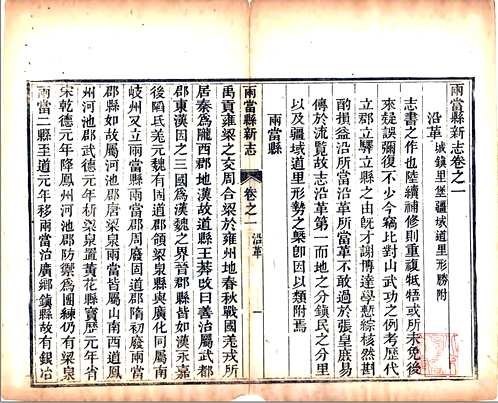 兩當縣新志卷之一
沿革 城鎮里堡疆域道里形勝附
志書之作也陸續補修則重複牴牾或所未免後
來疑誤彌復不少今竊比對山武功之例考歷代
立郡立縣之由旣才謝博達學慙綜核然斟
酌損益沿所當沿革所當革不敢過於張皇庶易
傳於流覽故志沿革第一而地之分鎮民之分里
以及疆域道里形勢之槩卽因以類附焉
兩當縣
禹貢雍梁之交周合梁於雍州地春秋戰國羌戎所
居秦爲隴西郡地漢故道縣王莽改曰善治屬武都
郡東漢因之三國爲漢魏之界晉郡縣皆如漢永嘉
後陷氐羌元魏有固道郡領梁泉縣與廣化同屬南
岐州又立兩當郡周廢固道郡隋初廢兩當
郡縣如故屬河池郡唐梁泉兩當皆屬山南西道鳳
州河池郡武德元年析梁泉置黃花縣寶歷元年省
宋乾德元年降鳳州河池郡防禦爲團練仍有梁泉
兩當二縣至道元年移兩當治廣鄉鎮縣故有銀冶
兩當縣新志
卷之一 沿革
一